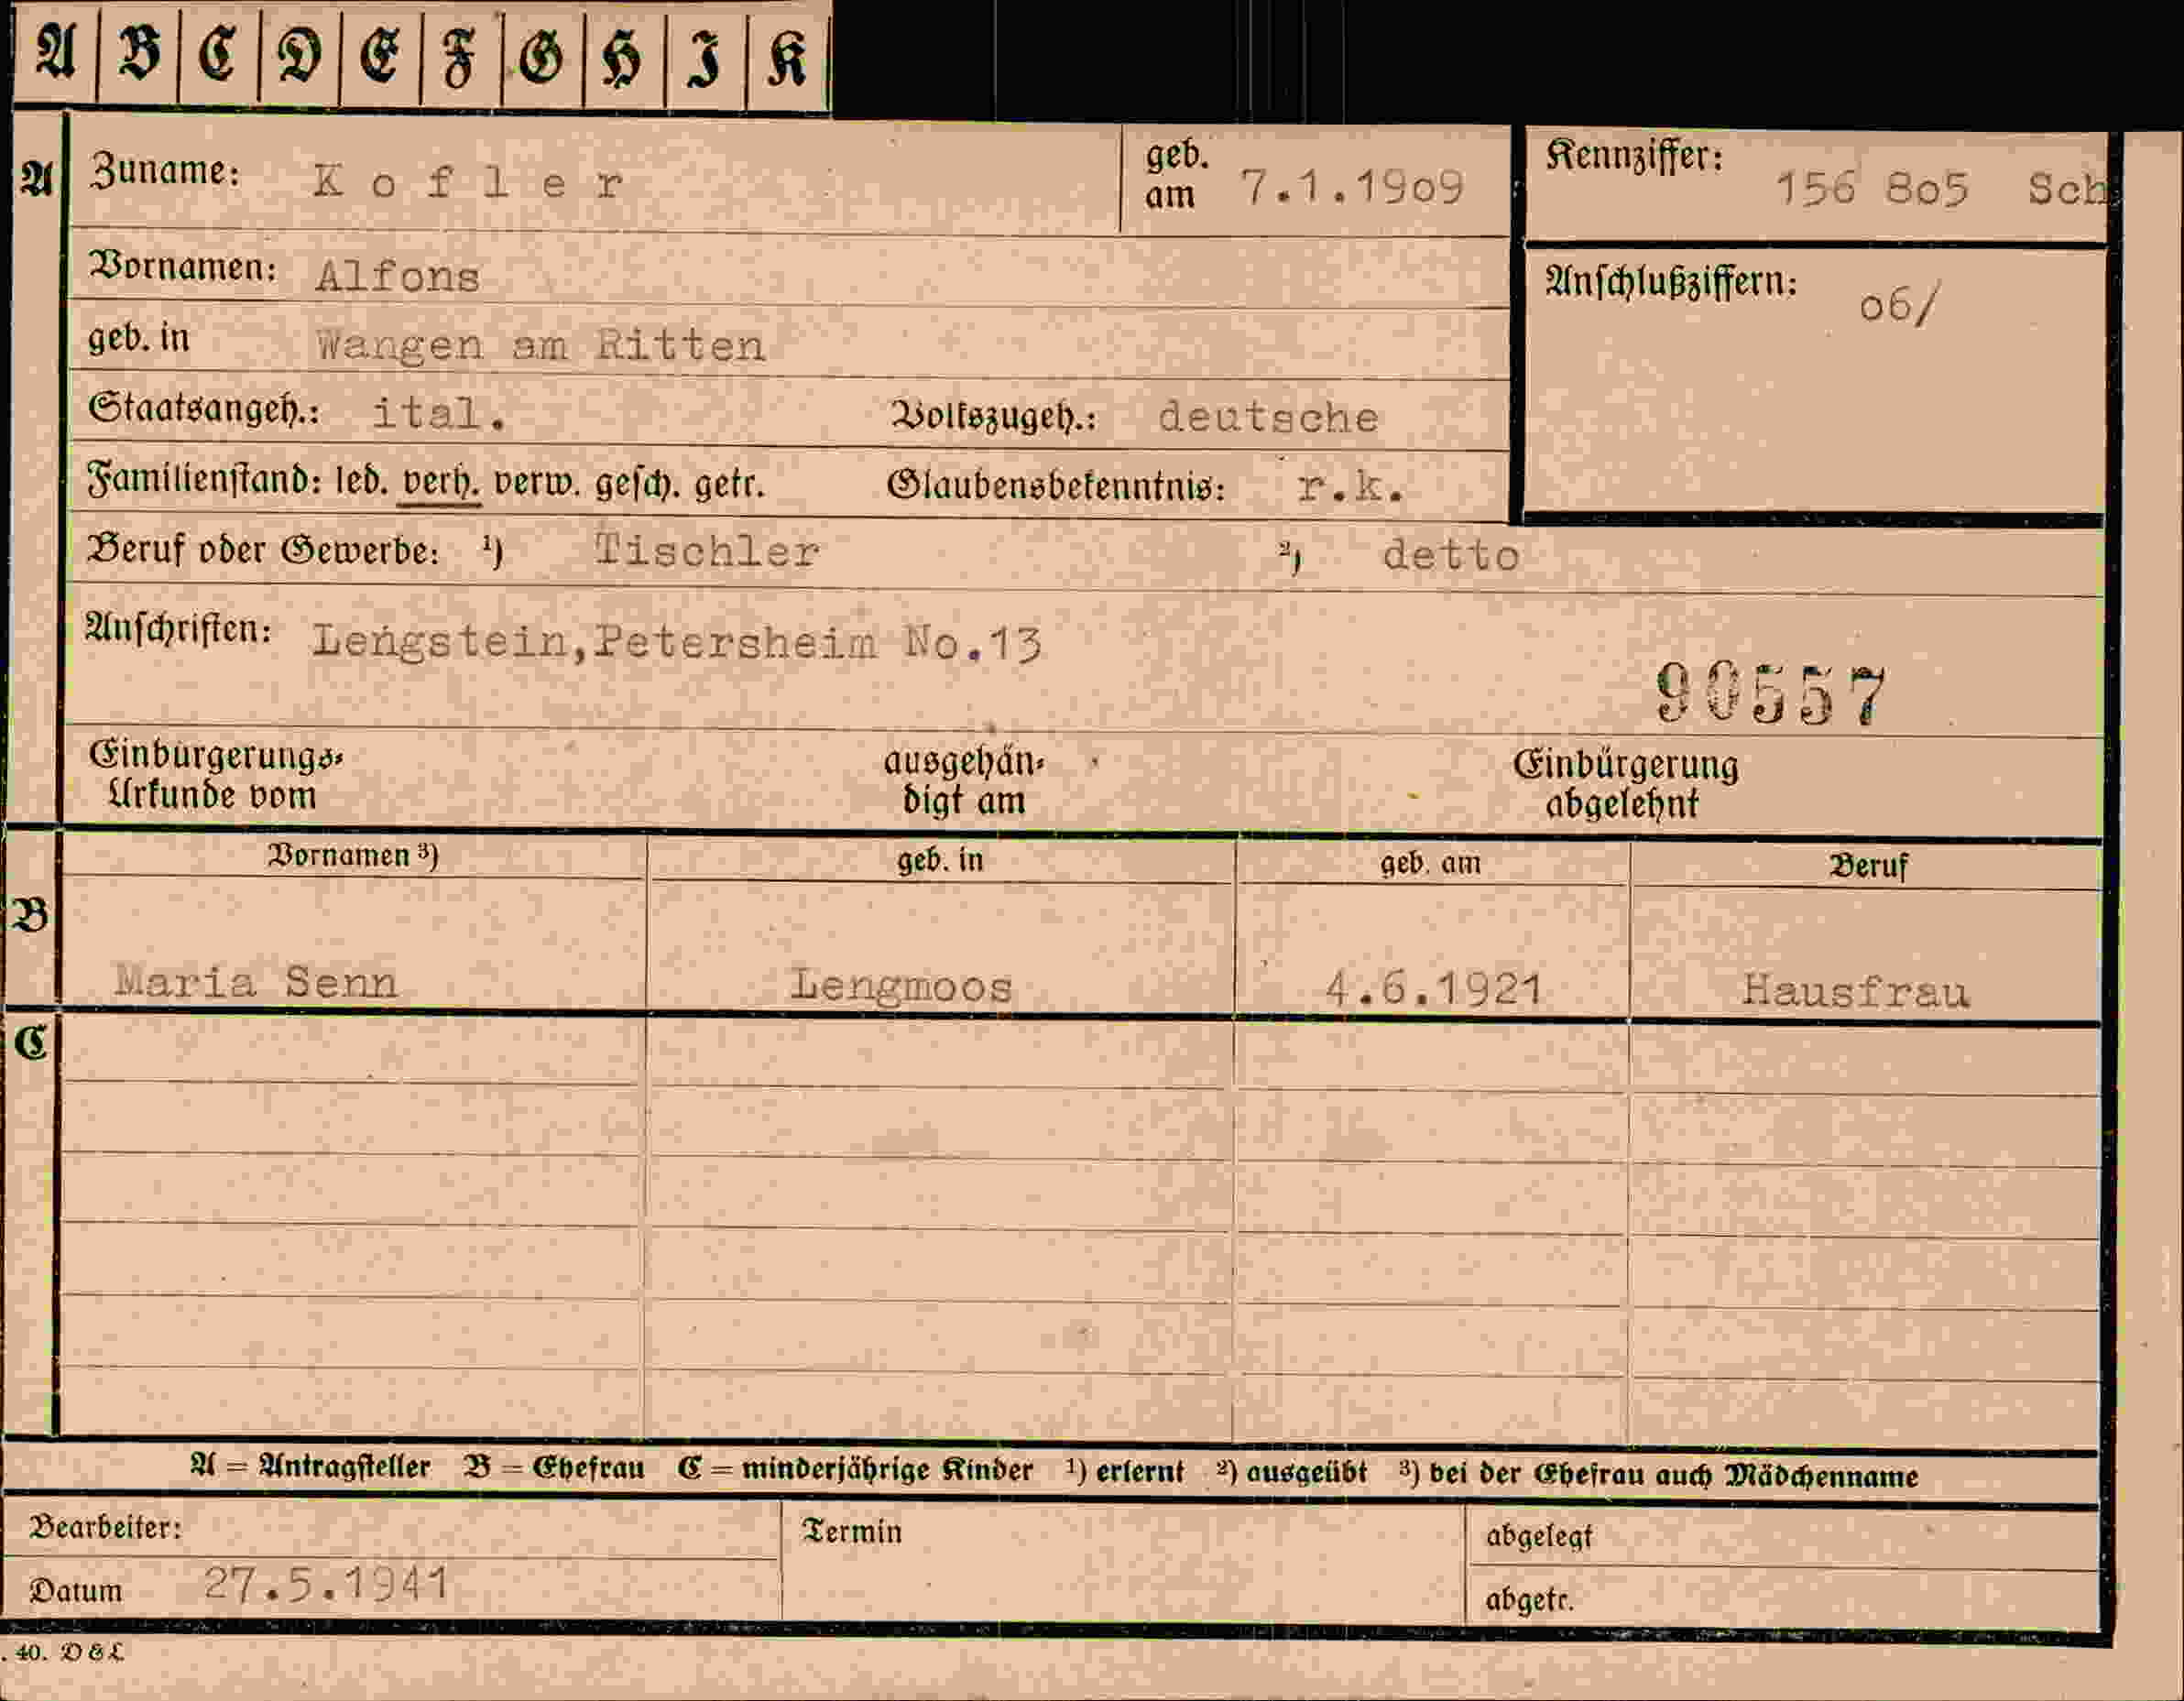 A B C D E F G H I K
A Zuname: Kofler geb. am 7.1.1909 Kennziffer: 156 805 Sch
Vornamen: Alfons Anschlußziffern: 06/
geb. in Wangen am Ritten
Staatsangeh.: ital. Volkszugeh.: deutsche
Familienstand: led. verh. verw. gesch. getr. Glaubensbekenntnis: r.k.
Beruf oder Gewerbe: ¹) Tischler ²) detto
Anschriften: Lengstein,Petersheim No.13
90557
Einbürgerungs- Urkunde vom ausgehän- digt am Einbürgerung abgelehnt
Vornamen ³) geb. in geb. am Beruf
B
Maria Senn Lengmoos 4.6.1921 Hausfrau
C
A = Antragsteller B = Ehefrau C = minderjährige Kinder ¹) erlernt ²) ausgeübt ³) bei der Ehefrau auch Mädchenname
Bearbeiter: Termin abgelegt
Datum 27.5.1941 abgetr.
. 40. D & L